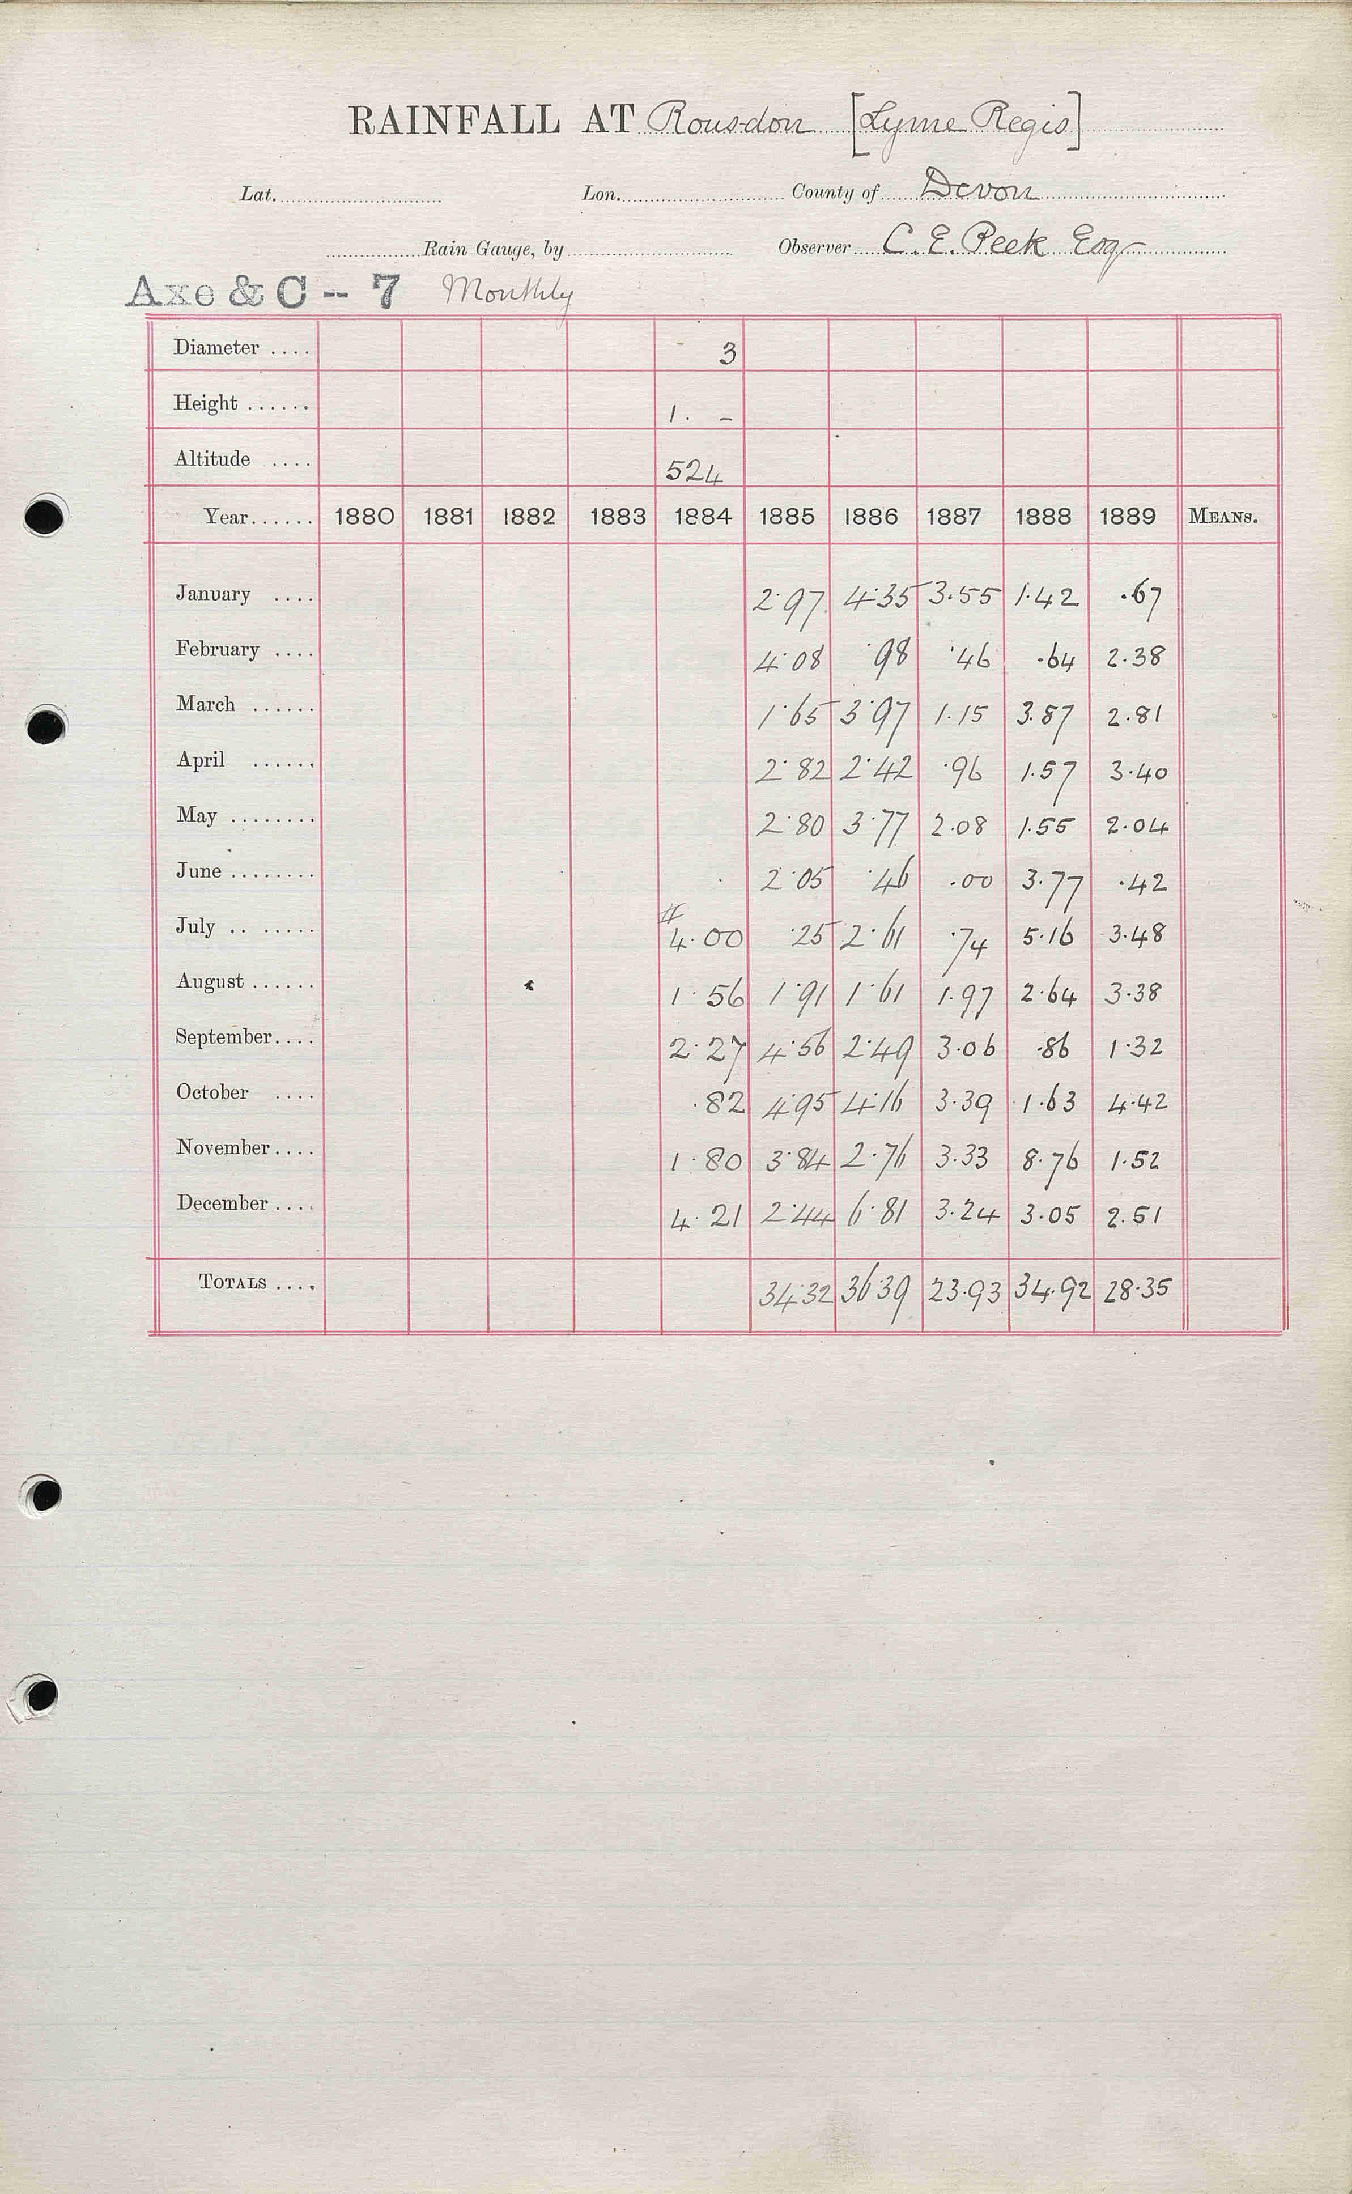 RAINFALL AT Rousdon [Lyme Regis]
Lat. Lon. County of Devon
Rain Gauge, by Observer C. E. Peek Esq
Axe & C -- 7 Monthly
Diameter .... 3
Height ...... 1. -
Altitude .... 524
Year...... 1880 1881 1882 1883 1884 1885 1886 1887 1888 1889 MEANS.
January .... 2.97 4.35 3.55 1.42 .67
February .... 4.08 .98 .46 .64 2.38
March ...... 1.65 3.97 1.15 3.87 2.81
April ...... 2.82 2.42 .96 1.57 3.40
May ........ 2.80 3.77 2.08 1.55 2.04
June ........ 2.05 .46 .00 3.77 .42
July .. ...... #4.00 .25 2.61 .74 5.16 3.48
August ...... 1.56 1.91 1.61 1.97 2.64 3.38
September.... 2.27 4.56 2.49 3.06 .86 1.32
October .... .82 4.95 4.16 3.39 1.63 4.42
November .... 1.80 3.84 2.76 3.33 8.76 1.52
December .... 4.21 2.44 6.81 3.24 3.05 2.51
TOTALS .... 34.32 36.39 23.93 34.92 28.35